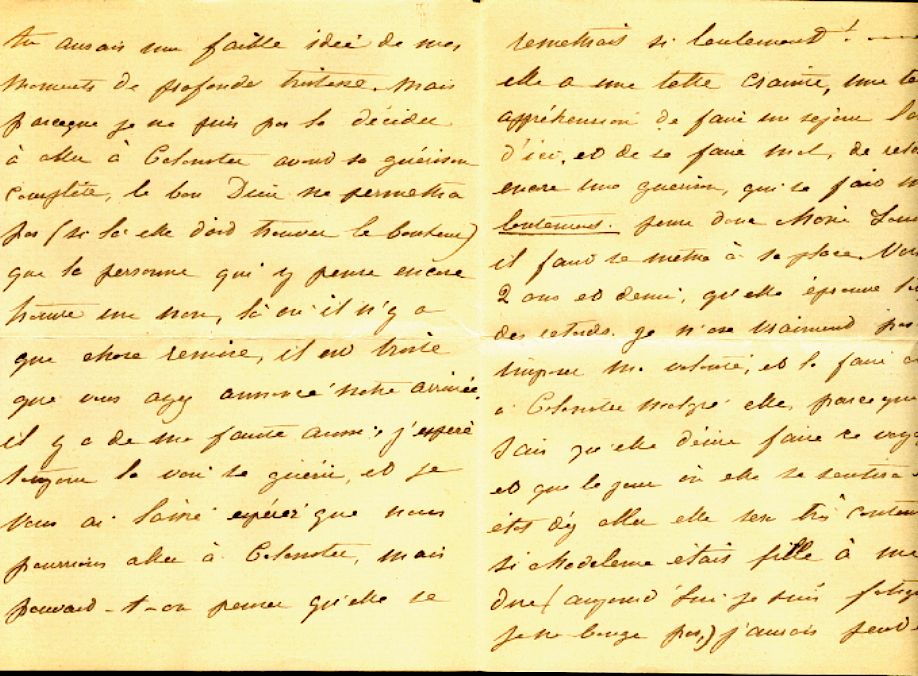 tu aurais une faible idée de mes
moments de profonde tristesse. Mais
parceque je ne puis pas la décider
à aller à Colonster avant sa guérison
complète, le bon Dieu ne permettra
pas (si là elle doit trouver le bonheur)
que la personne qui y pense encore
trouve un non, là où il n'y a
que chose remise, il est triste
que vous ayez annoncé notre arrivée,
il y a de ma faute aussi, j'espère
toujours la voir se guérir, et je
vous ai laissé espérer que nous
pourrions aller à Colonster, mais
pouvait-t-on penser qu'elle se
remettrait si lentement!
elle a une telle crainte, une te
appréhension de faire un séjour lo
d'ici, et de se faire mal, de reta
encore une guérison, qui se fait
lentement. pense donc Marie
il faut se mettre à sa place. Voi
2 ans et demi, qu'elle éprouve
des retards. je n'ose vraiment pas
imposer ma volonté, et la faire
à Colonster malgré elle, parceque
sais qu'elle désire faire ce voya
et que le jour où elle se sentira
état d'y aller elle sera très conten
si Madeleine était fille à me
dire (aujourd'hui je suis fatigu
je ne bouge pas,) j'aurais peut-